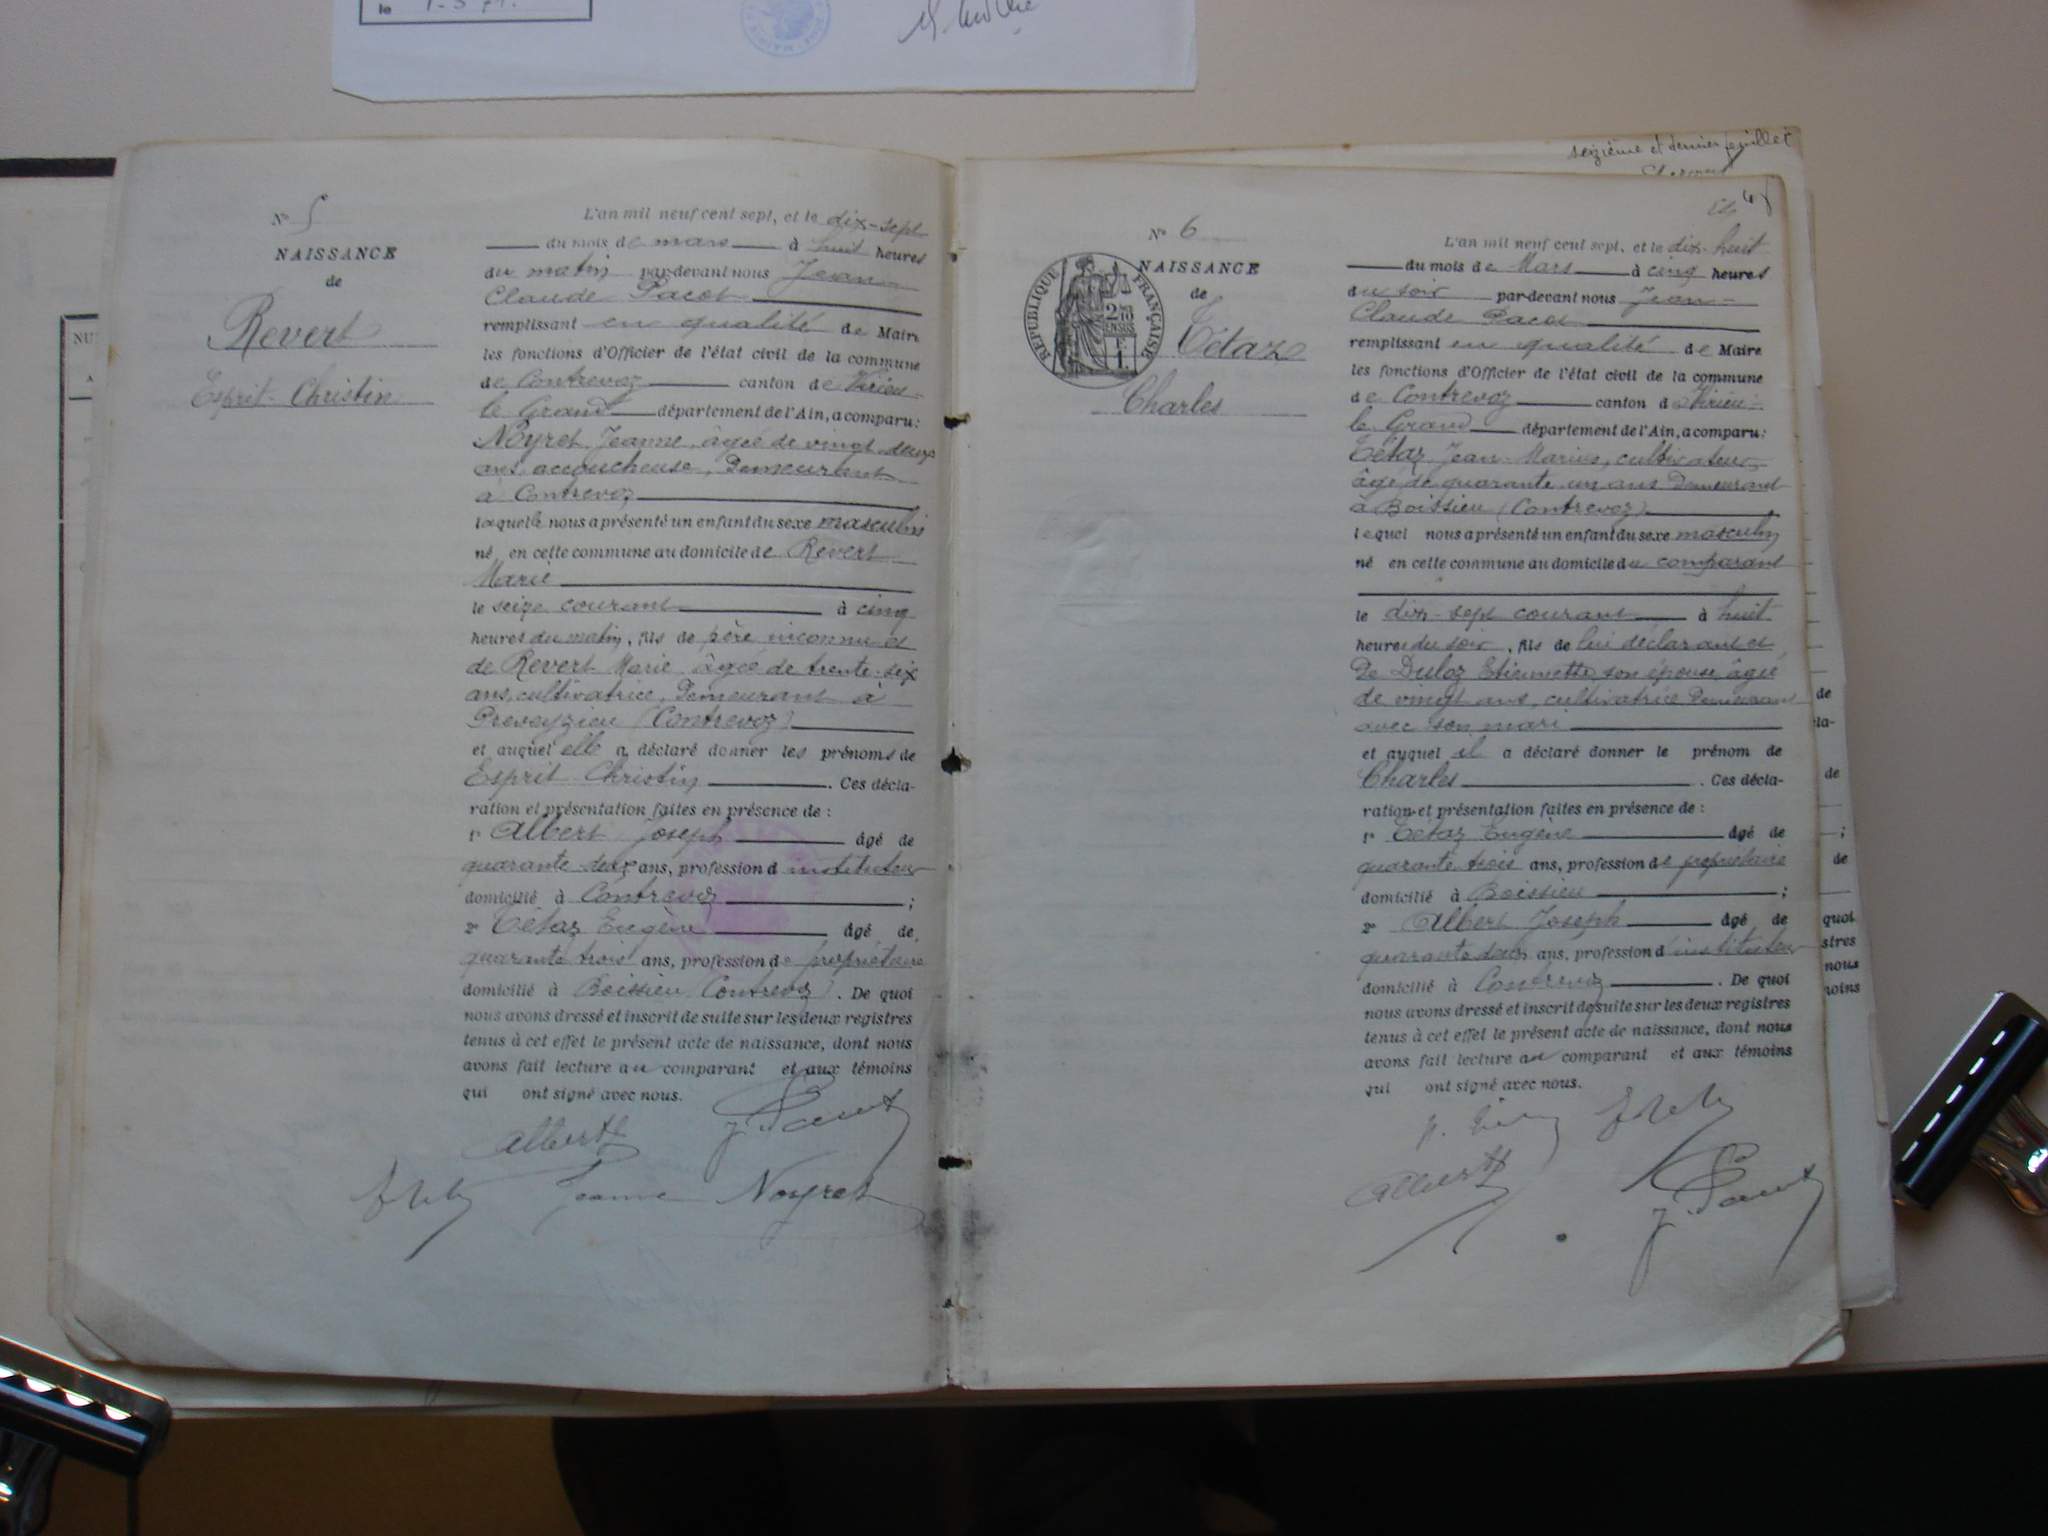 le 1-3 71.
seizième et dernier feuillet
N° 5
NAISSANCE
de
Revert
Esprit-Christin
L'an mil neuf cent sept, et le dix-sept
du mois de mars à huit heures
du matin par-devant nous Jean-
Claude Pacot
remplissant en qualité de Maire
les fonctions d'Officier de l'état civil de la commune
de Contrevoz canton de Virieu-
le Grand département de l'Ain, a comparu:
Noyret Jeanne, âgée de vingt deux
ans, accoucheuse, Demeurant
à Contrevoz
laquelle nous a présenté un enfant du sexe masculin
né en cette commune au domicile de Revert
Marie
le seize courant à cinq
heures du matin, fils de père inconnu et
de Revert Marie âgée de trente-six
ans, cultivatrice, Demeurant à
Preveyzieu (Contrevoz)
et auquel elle a déclaré donner les prénoms de
Esprit Christin . Ces décla-
ration et présentation faites en présence de :
1° Albert Joseph âgé de
quarante deux ans, profession d'instituteur
domicilié à Contrevoz ;
2° Tétaz Eugène âgé de
quarante trois ans, profession de propriétaire
domicilié à Boissieu (Contrevoz). De quoi
nous avons dressé et inscrit de suite sur les deux registres
tenus à cet effet le présent acte de naissance, dont nous
avons fait lecture au comparant et aux témoins
qui ont signé avec nous.
Albert J. Pacot
Jeanne Noyret
N° 6
NAISSANCE
de
Tétaz
Charles
RÉPUBLIQUE FRANÇAISE
2/10
EN SUS
L'an mil neuf cent sept, et le dix-huit
du mois de Mars à cinq heures
du soir par-devant nous Jean-
Claude Pacot
remplissant en qualité de Maire
les fonctions d'Officier de l'état civil de la commune
de Contrevoz canton de Virieu-
le Grand département de l'Ain, a comparu:
Tétaz Jean-Marius, cultivateur
âgé de quarante un ans Demeurant
à Boissieu (Contrevoz)
lequel nous a présenté un enfant du sexe masculin
né en cette commune au domicile du comparant
le dix-sept courant à huit
heures du soir, fils de lui déclarant et
De Duloz Etiennette son épouse, âgée
de vingt ans, cultivatrice Demeurant
avec son mari
et auquel il a déclaré donner le prénom de
Charles . Ces décla-
ration et présentation faites en présence de :
1° Tétaz Eugène âgé de
quarante trois ans, profession de propriétaire
domicilié à Boissieu ;
2° Albert Joseph âgé de
quarante deux ans, profession d'instituteur
domicilié à Contrevoz . De quoi
nous avons dressé et inscrit de suite sur les deux registres
tenus à cet effet le présent acte de naissance, dont nous
avons fait lecture au comparant et aux témoins
qui ont signé avec nous.
Albert J. Pacot
de
la-
de
;
de
quoi
stres
nous
moins